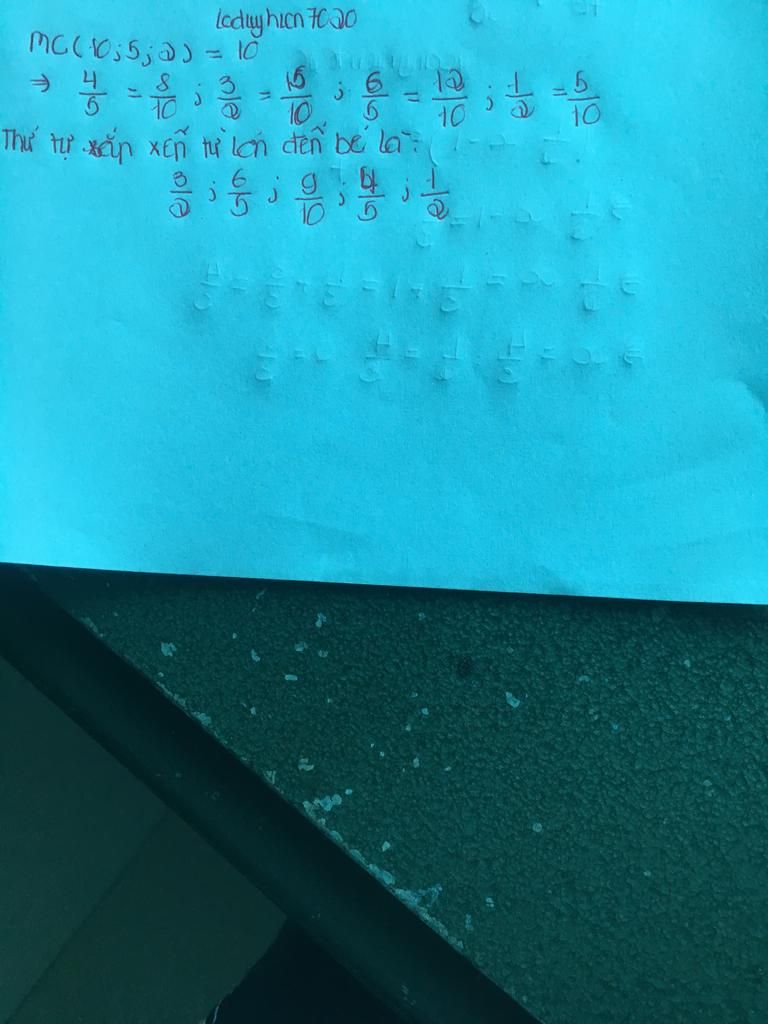 leduyhien7020
MC(10;5;2) = 10
⇒ 4/5 = 8/10 ; 3/2 = 15/10 ; 6/5 = 12/10 ; 1/2 = 5/10
Thứ tự sắp xến từ lớn đến bé là:
3/2 ; 6/5 ; 9/10 ; 4/5 ; 1/2